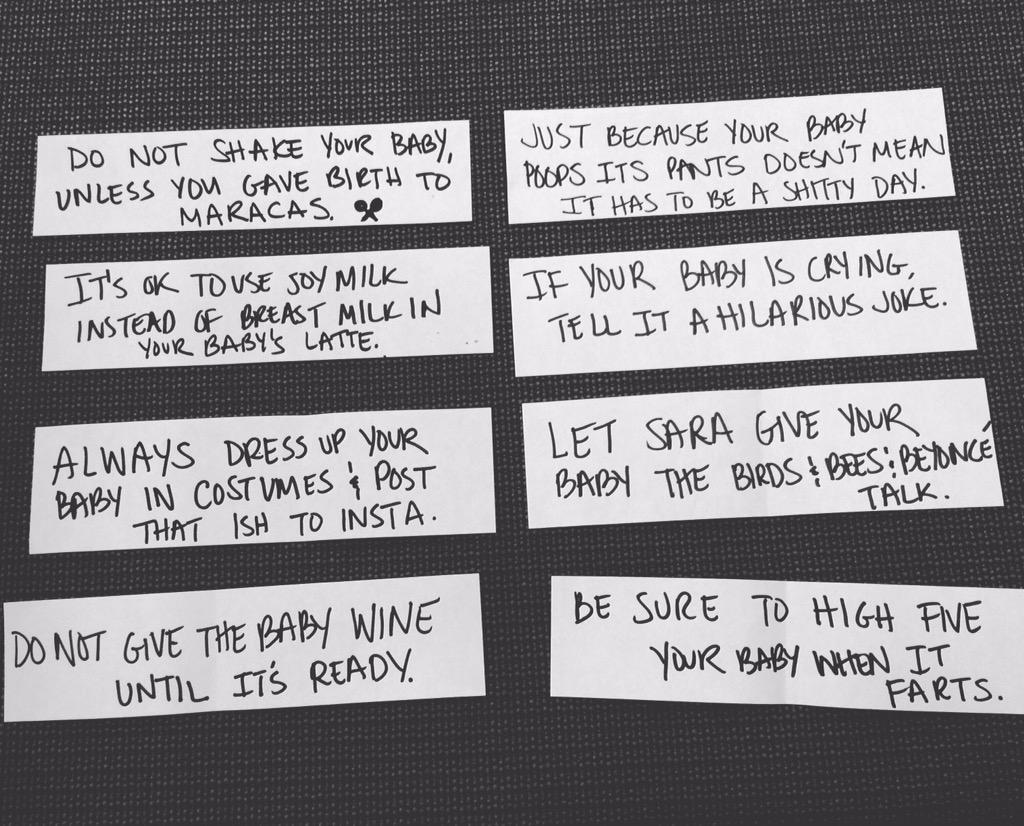 DO NOT SHAKE YOUR BABY,
UNLESS YOU GAVE BIRTH TO
MARACAS.
JUST BECAUSE YOUR BABY
POOPS ITS PANTS DOESN'T MEAN
IT HAS TO BE A SHITTY DAY.
IT'S OK TO USE SOY MILK
INSTEAD OF BREAST MILK IN
YOUR BABY'S LATTE.
IF YOUR BABY IS CRYING,
TELL IT A HILARIOUS JOKE.
ALWAYS DRESS UP YOUR
BABY IN COSTUMES & POST
THAT ISH TO INSTA.
LET SARA GIVE YOUR
BABY THE BIRDS & BEES & BEYONCÉ
TALK.
DO NOT GIVE THE BABY WINE
UNTIL IT'S READY.
BE SURE TO HIGH FIVE
YOUR BABY WHEN IT
FARTS.